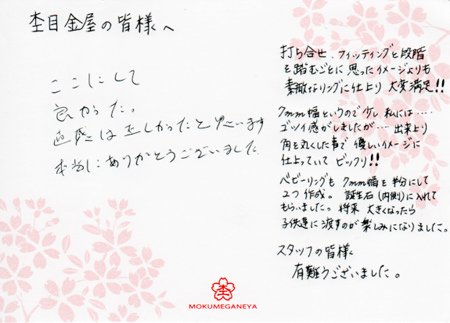 杢目金屋の皆様へ
ここにして
良かった。
直感は正しかったと思います
本当にありがとうございました
打ち合せ、フィッティングと段階
を踏むごとに思ったイメージよりも
素敵なリングに仕上り大変満足!!
7mm幅というので少し私には…
ゴツイ感がしましたが…出来上り
角を丸くした事で優しいイメージに
仕上っていてビックリ!!
ベビーリングも7mm幅を半分にして
2つ作成。誕生石(内側)に入れて
もらいました。将来大きくなったら
子供達に渡すのが楽しみになりました。
スタッフの皆様
有難うございました。
MOKUMEGANEYA